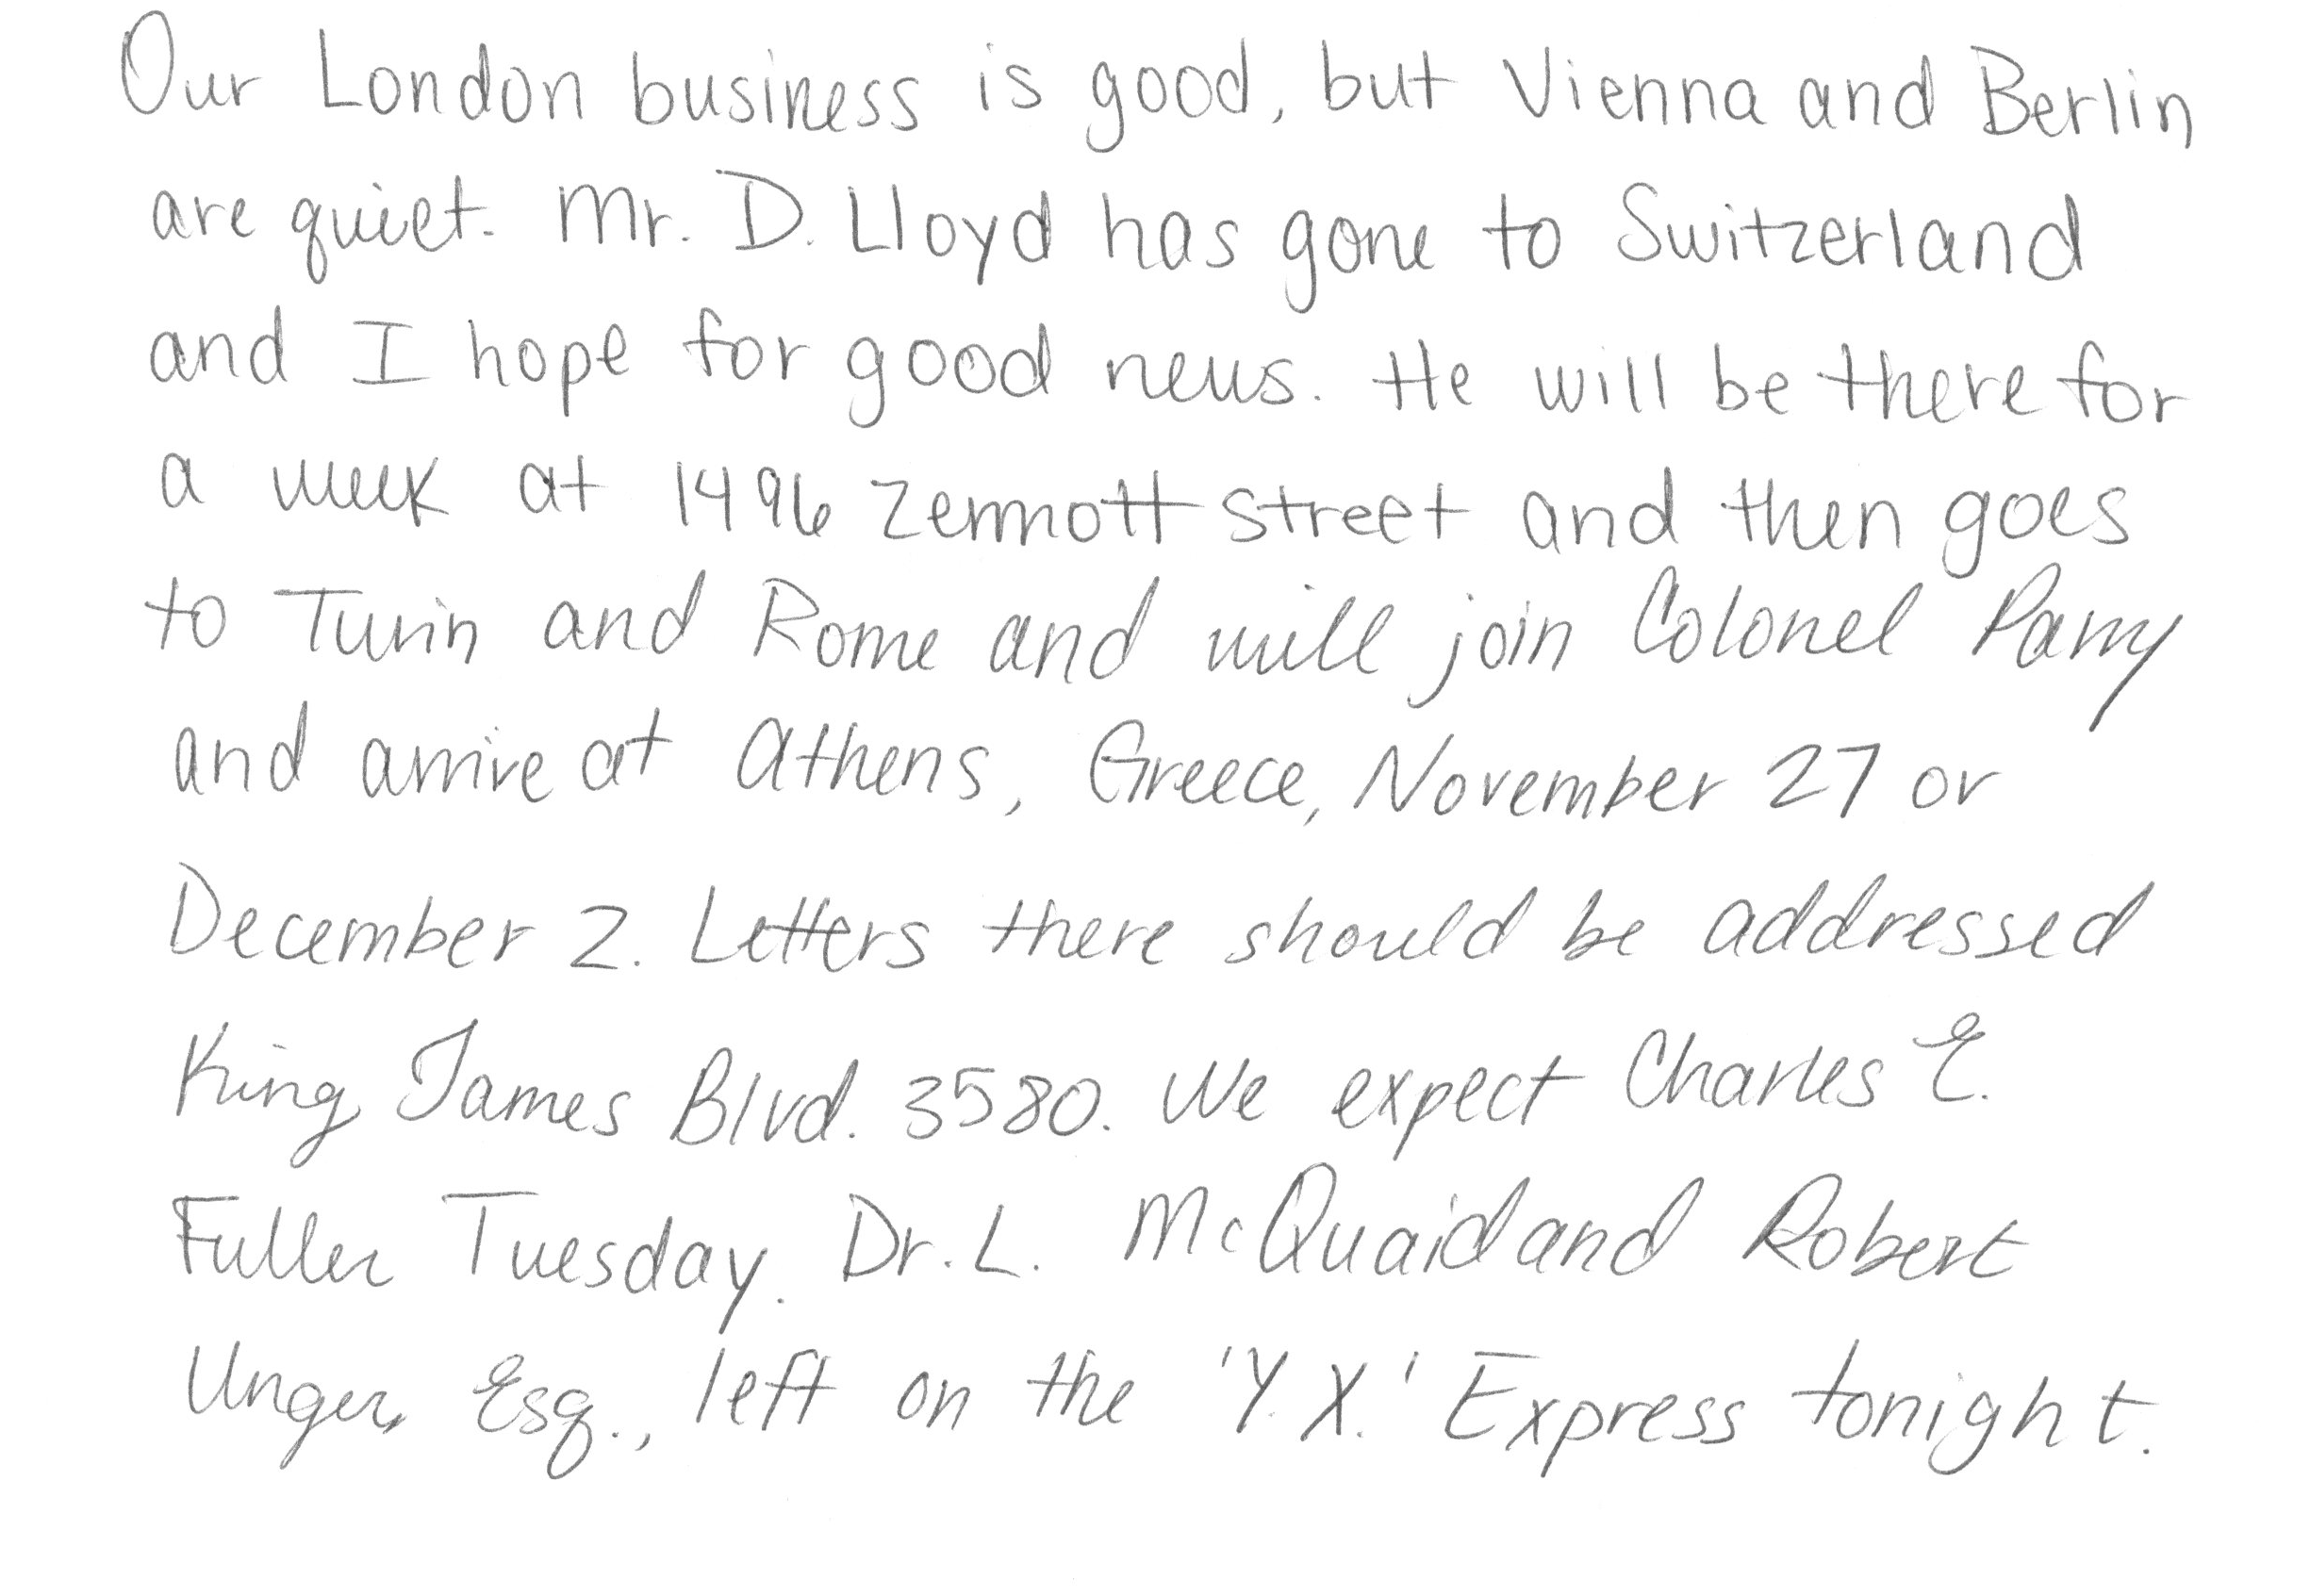 Our London business is good, but Vienna and Berlin
are quiet. Mr. D. Lloyd has gone to Switzerland
and I hope for good news. He will be there for
a week at 1496 Zermott street and then goes
to Turin and Rome and will join Colonel Parry
and arrive at Athens, Greece, November 27 or
December 2. Letters there should be addressed
King James Blvd. 3580. We expect Charles E.
Fuller Tuesday. Dr. L. McQuaid and Robert
Unger, Esq., left on the 'Y.X.' Express tonight.